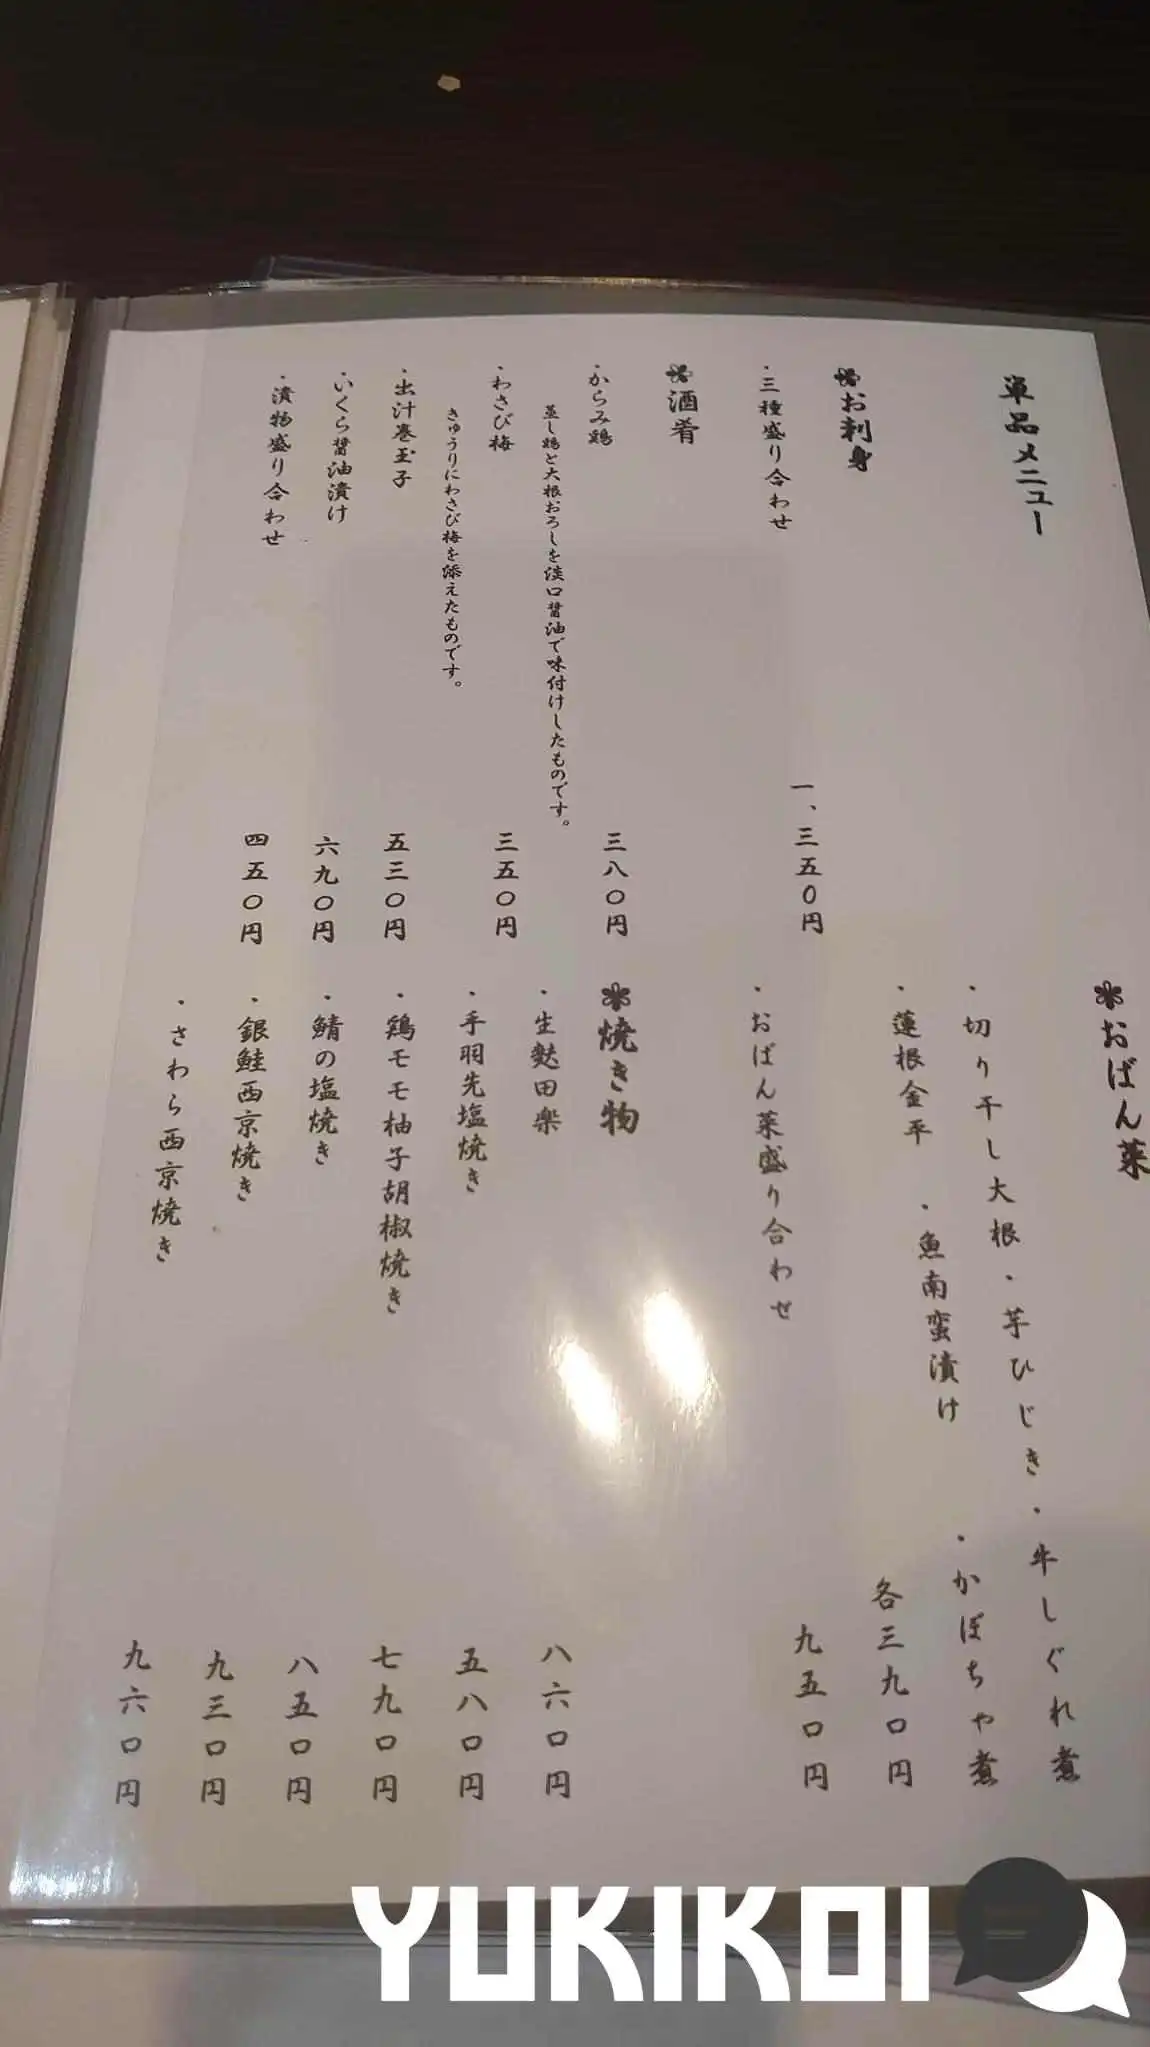 単品メニュー
お刺身
・三種盛り合わせ
一、三五〇円
酒肴
・からみ鶏
三八〇円
蒸し鶏と大根おろしを淡口醤油で味付けしたものです。
・わさび梅
三五〇円
きゅうりにわさび梅を添えたものです。
・出汁巻玉子
五三〇円
・いくら醤油漬け
六九〇円
・漬物盛り合わせ
四五〇円
おばん菜
・切り干し大根・芋ひじき・牛しぐれ煮
・蓮根金平・魚南蛮漬け・かぼちゃ煮
各三九〇円
・おばん菜盛り合わせ
九五〇円
焼き物
・生麩田楽
八六〇円
・手羽先塩焼き
五八〇円
・鶏モモ柚子胡椒焼き
七九〇円
・鯖の塩焼き
八五〇円
・銀鮭西京焼き
九三〇円
・さわら西京焼き
九六〇円
YUKIKOI